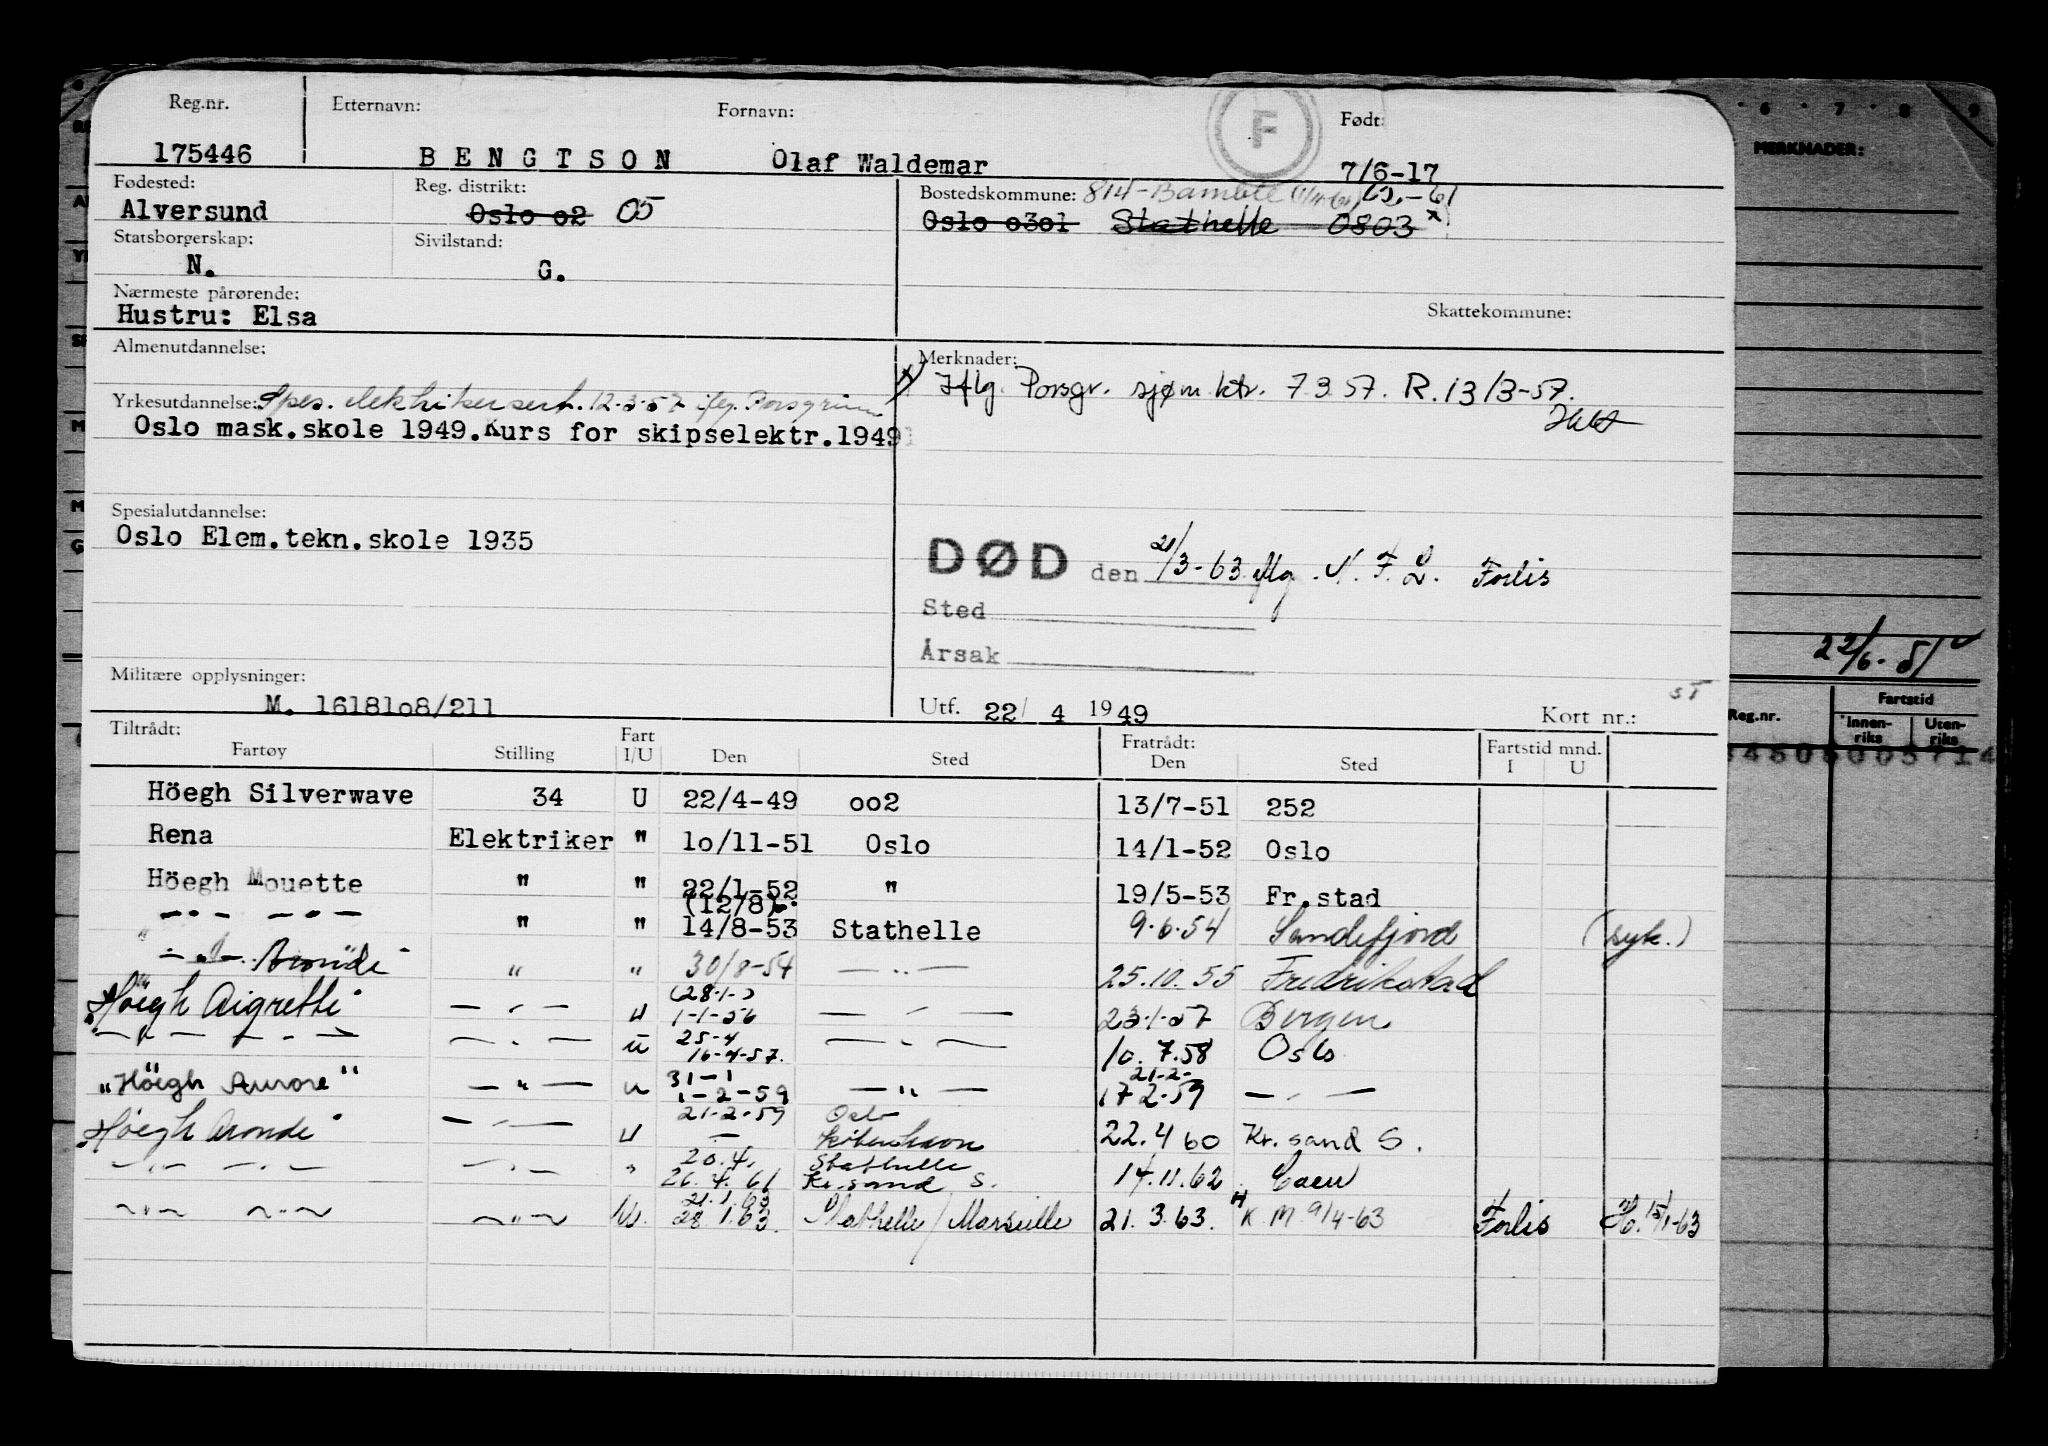 Reg.nr. Etternavn: Fornavn: F Født:
175446 BENGTSON Olaf Waldemar 7/6-17
Fødested: Reg. distrikt: Bostedskommune: 814-Bamble
Alversund Oslo o2 05 Oslo o3o1 Stathelle 0803 x
Statsborgerskap: Sivilstand:
N. G.
Nærmeste pårørende:
Hustru: Elsa Skattekommune:
Almenutdannelse: Merknader:
x) Iflg. Porsgr. sjøm.ktr. 7.3.57. R. 13/3-57.
Yrkesutdannelse: Spes. elektrikersert. 12-3-57 iflg. Porsgrunn
Oslo mask.skole 1949.Kurs for skipselektr.1949
Spesialutdannelse:
Oslo Elem.tekn.skole 1935
DØD den 21/3-63 iflg. N.F.L. Forlis
Sted
Årsak
Militære opplysninger:
M. 16181o8/211 Utf. 22/ 4 1949 Kort nr.:
Tiltrådt: Fratrådt: Fartstid mnd.
Fartøy Stilling Fart I/U Den Sted Den Sted I U
Höegh Silverwave 34 U 22/4-49 oo2 13/7-51 252
Rena Elektriker " 1o/11-51 Oslo 14/1-52 Oslo
Höegh Mouette " " 22/1-52 " 19/5-53 Fr.stad
(12/8)
— " — — " — " " 14/8-53 Stathelle 9.6.54 Sandefjord (syk.)
— " — Aronde " " 30/8-54 — " — 25.10.55 Fredrikstad
(28-1-)
"Höegh Aigrette" — " — U 1-1-56 — " — 23-1-57 Bergen
25-4
— " — — " — — " — U 16-4-57. — " — 10.7.58 Oslo
31-1 21-2-
"Höegh Aurore" — " — U 1-2-59 — " — 17-2-59 — " —
21-2-59 Oslo
"Höegh Aronde" — " — U — København 22.4 60 Kr.sand S.
20.4. Stathelle
— " — — " — — " — " 26.4.61 Kr.sand S. 14.11.62 Caen
21.1.63
— " — — " — — " — U. 28.1.63. Stathelle/Marseille 21.3.63. K.M. 9/4-63 Forlis
6 7 8 9
MERKNADER:
22/6-51
Reg.nr. Fartstid
Innenriks Utenriks